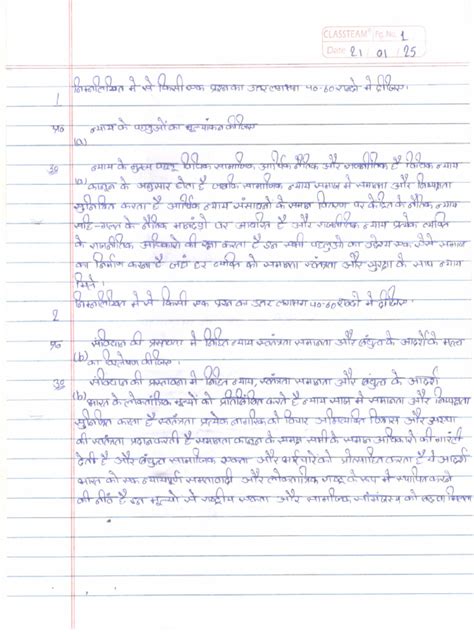 CLASSTEAM Pg.No. 1
Date 21 01 25
निम्नलिखित मे से किसी एक प्रश्न का उत्तर लगभग 40-60 शब्दो मे दीजिए।
1
प्र० न्याय के पहलुओं का मूल्यांकन कीजिए
(a)
उ० न्याय के मुख्य पहलू विधिक सामाजिक आर्थिक नैतिक और राजनीतिक है विधिक न्याय
(a) कानून के अनुसार होता है जबकि सामाजिक न्याय समाज मे समानता और निष्पक्षता
सुनिश्चित करता है आर्थिक न्याय संसाधनो के समान वितरण पर केंद्रित है नैतिक न्याय
सही-गलत के नैतिक मानदंडो पर आधारित है और राजनीतिक न्याय प्रत्येक व्यक्ति
के राजनीतिक अधिकारो की रक्षा करता है इन सभी पहलुओ का उद्देश्य एक ऐसे समाज
का निर्माण करना है जहां हर व्यक्ति को समानता स्वतंत्रता और सुरक्षा के साथ न्याय
मिले।
निम्नलिखित मे से किसी एक प्रश्न का उत्तर लगभग 40-60 शब्दो मे दीजिए।
2
प्र० संविधान की प्रस्तावना मे निहित न्याय स्वतंत्रता समानता और बंधुत्व के आदर्शो के महत्व
(b) का विश्लेषण कीजिए।
उ० संविधान की प्रस्तावना मे निहित न्याय, स्वतंत्रता समानता और बंधुत्व के आदर्श
(b) भारत के लोकतांत्रिक मूल्यो को प्रतिबिंबित करते है न्याय समाज मे समानता और निष्पक्षता
सुनिश्चित करता है स्वतंत्रता प्रत्येक नागरिक को विचार अभिव्यक्ति विश्वास और
की स्वतंत्रता प्रदान करती है समानता कानून के समक्ष सभी के समान अधिकारो की गारंटी
देती है और बंधुत्व सामाजिक एकता और भाईचारे को प्रोत्साहित करता है ये आदर्श
भारत को एक न्यायपूर्ण समतावादी और लोकतांत्रिक राष्ट्र के रूप मे स्थापित करने
की नींव है इन मूल्यो से राष्ट्रीय एकता और सामाजिक सामंजस्य को बढ़ावा मिलता